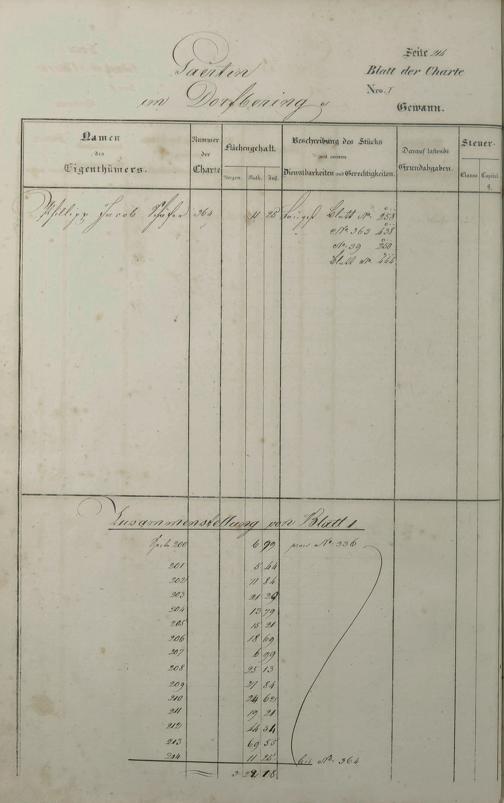 Seite 214
Blatt der Charte
Nro. I
Gewann.
Gaerten
im Dorfbering
Namen
des
Eigenthümers.
Nummer
der
Charte
Flächengehalt.
Morgen.
Ruth.
Fuß.
Beschreibung des Stücks
mit seinen
Dienstbarkeiten und Gerechtigkeiten.
Darauf haftende
Grundabgaben.
Steuer-
Classe
Capital.
Philipp Jacob Schäfer 364 11 25 Blatt No. 258
No. 363 438
No. 39 260
Blatt No.
Zusammenstellung von Blatt 1
Seite 200 6 99 No. 336
201 5 44
202 11 84
203 21 29
204 13 79
205 15 21
206 18 69
207 6 99
208 25 13
209 27 84
210 24 62
211 19 21
212 44 34
213 69 55
214 11 25 bis No. 364
3 22 18